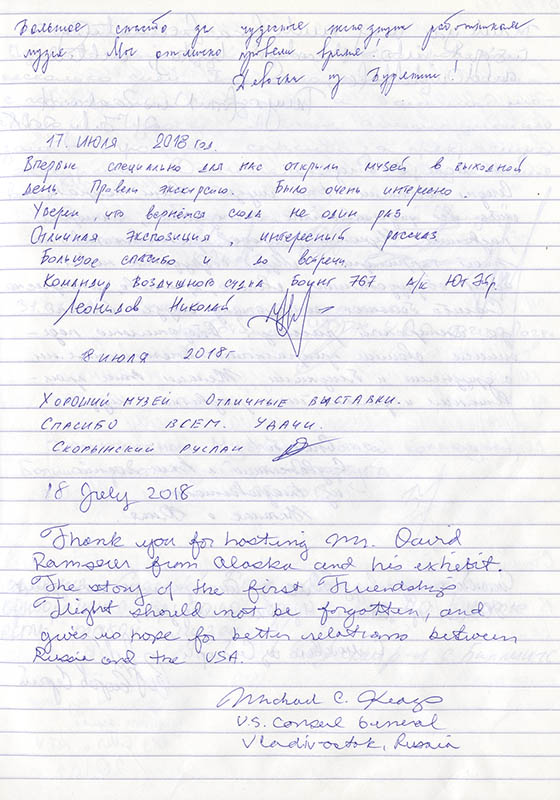 Большое спасибо за чудесную экспозицию работникам
музея. Мы отлично провели время.
Девочки из Бурятии!!
17. июля 2018 год.
Впервые специально для нас открыли музей в выходной
день. Провели экскурсию. Было очень интересно.
Уверен, что вернёмся сюда не один раз.
Отличная экспозиция, интересный рассказ.
Большое спасибо и до встречи.
Командир воздушного судна Боинг 767 а/к ЮтЭйр.
Леонидов Николай
8 июля 2018г
Хороший музей. Отличные выставки.
Спасибо всем. Удачи.
Скорынский Руслан
18 July 2018
Thank you for hosting Mr. David
Ramseur from Alaska and his exhibit.
The story of the first Friendship
Flight should not be forgotten, and
gives us hope for better relations between
Russia and the USA.
Michael C. Keays
U.S. Consul General
Vladivostok, Russia